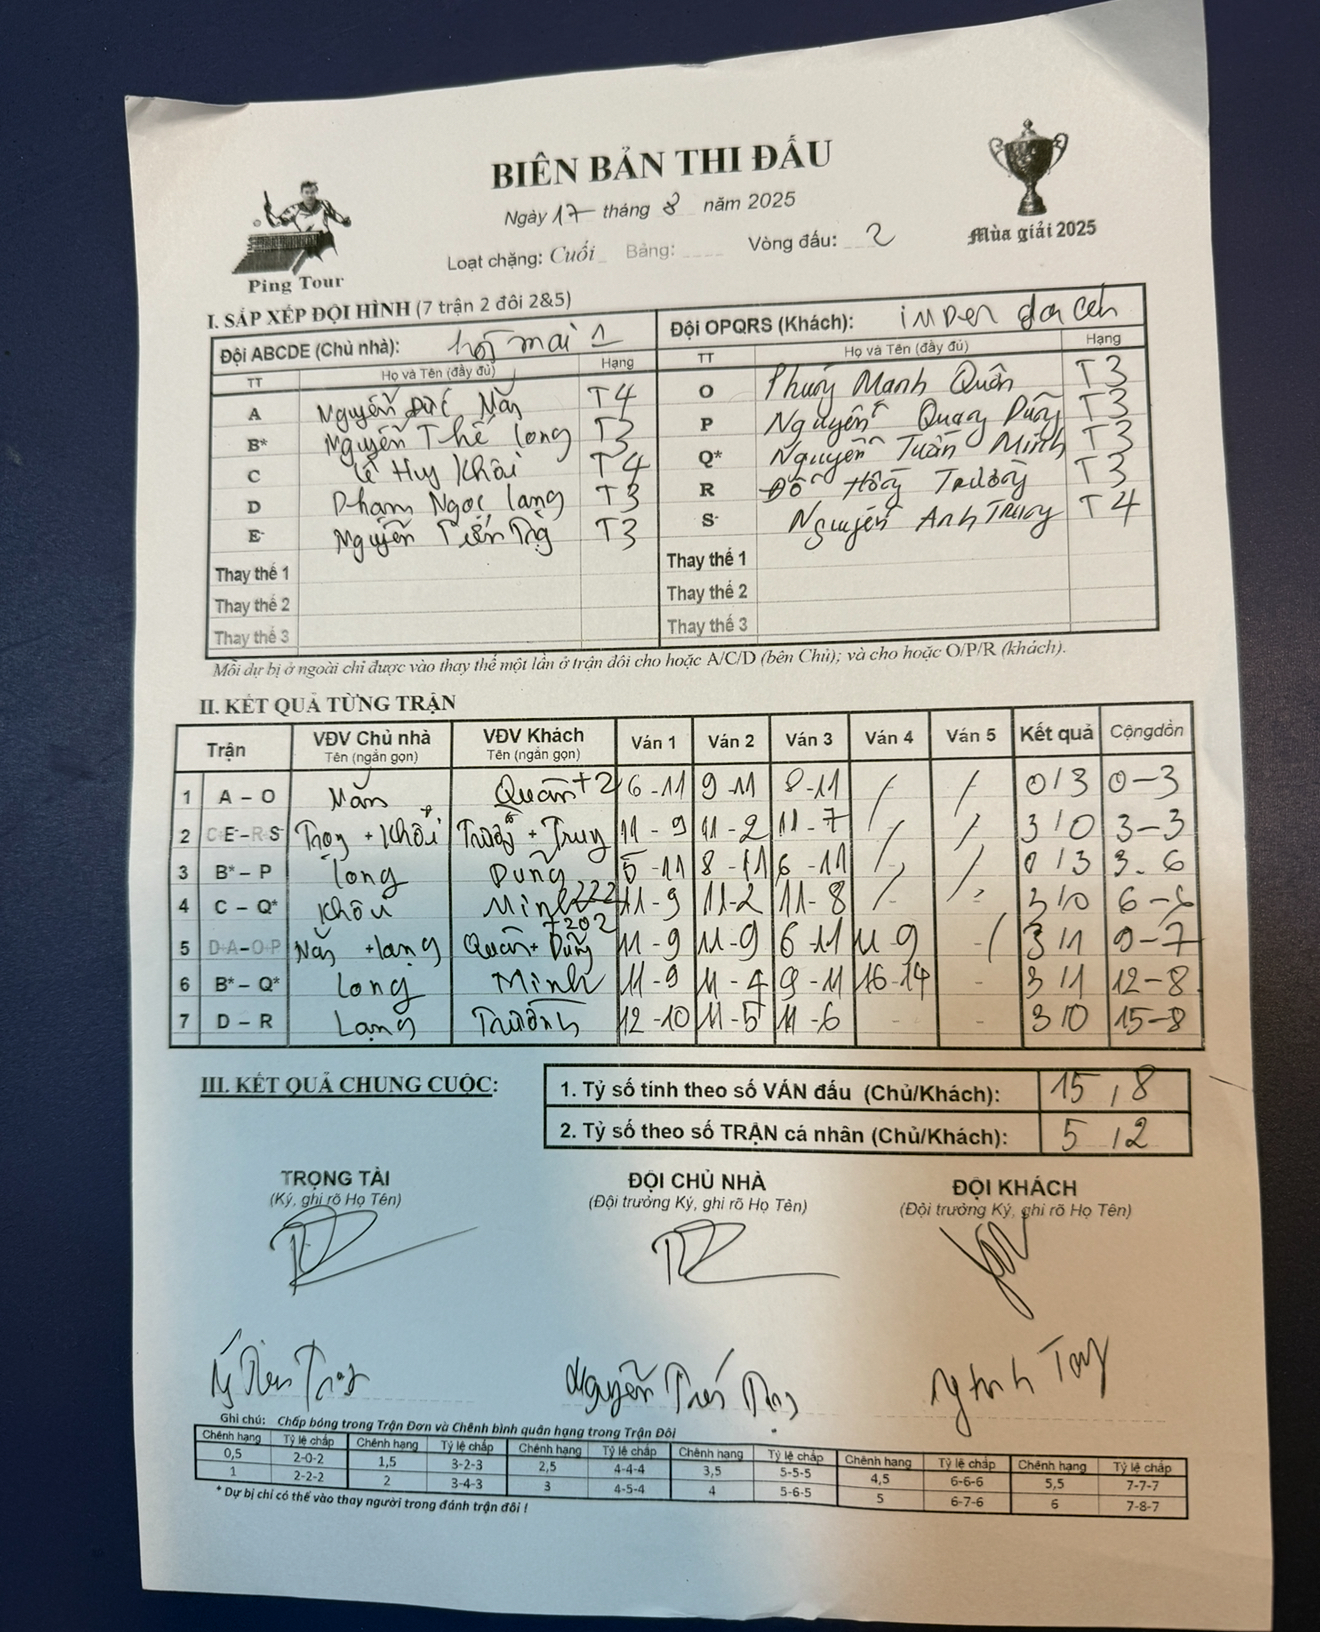 BIÊN BẢN THI ĐẤU
Ngày 17 tháng 8 năm 2025
Loạt chặng: Cuối Bảng: Vòng đấu: 2
Ping Tour
Mùa giải 2025
I. SẮP XẾP ĐỘI HÌNH (7 trận 2 đôi 2&5)
Đội ABCDE (Chủ nhà): mai 1 Đội OPQRS (Khách):
TT Họ và Tên (đầy đủ) Hạng TT Họ và Tên (đầy đủ) Hạng
A Nguyễn Đức T4 O Mạnh Quân T3
B* Nguyễn Thế Long T3 P Nguyễn Quang Dũng T3
C Lê Huy Khôi T4 Q* Nguyễn Tuấn Minh T3
D Phạm Ngọc Lang T3 R Đỗ Hồng Trường T3
E- Nguyễn Tiến T3 S- Nguyễn Anh Trung T4
Thay thế 1 Thay thế 1
Thay thế 2 Thay thế 2
Thay thế 3 Thay thế 3
Mỗi dự bị ở ngoài chỉ được vào thay thế một lần ở trận đôi cho hoặc A/C/D (bên Chủ); và cho hoặc O/P/R (khách).
II. KẾT QUẢ TỪNG TRẬN
Trận VĐV Chủ nhà Tên (ngắn gọn) VĐV Khách Tên (ngắn gọn) Ván 1 Ván 2 Ván 3 Ván 4 Ván 5 Kết quả Cộng dồn
1 A – O Quân +2 6-11 9-11 8-11 / / 0/3 0-3
2 C+E-–R+S- + Khôi Trường + Trung 11-9 11-2 11-7 / / 3/0 3-3
3 B* – P Long Dũng 5-11 8-11 6-11 / / 0/3 3-6
4 C – Q* Khôi Minh 222 11-9 11-2 11-8 / / 3/0 6-6
5 D+A–O+P + Lang Quân + Dũng +202 11-9 11-9 6-11 11-9 - 3/1 9-7
6 B* – Q* Long Minh 11-9 11-4 9-11 16-14 - 3/1 12-8
7 D – R Lang Trường 12-10 11-5 11-6 - - 3/0 15-8
III. KẾT QUẢ CHUNG CUỘC:
1. Tỷ số tính theo số VÁN đấu (Chủ/Khách): 15 / 8
2. Tỷ số theo số TRẬN cá nhân (Chủ/Khách): 5 / 2
TRỌNG TÀI ĐỘI CHỦ NHÀ ĐỘI KHÁCH
(Ký, ghi rõ Họ Tên) (Đội trưởng Ký, ghi rõ Họ Tên) (Đội trưởng Ký, ghi rõ Họ Tên)
Nguyễn
Ghi chú: Chấp bóng trong Trận Đơn và Chênh bình quân hạng trong Trận Đôi
Chênh hạng Tỷ lệ chấp Chênh hạng Tỷ lệ chấp Chênh hạng Tỷ lệ chấp Chênh hạng Tỷ lệ chấp Chênh hạng Tỷ lệ chấp Chênh hạng Tỷ lệ chấp
0,5 2-0-2 1,5 3-2-3 2,5 4-4-4 3,5 5-5-5 4,5 6-6-6 5,5 7-7-7
1 2-2-2 2 3-4-3 3 4-5-4 4 5-6-5 5 6-7-6 6 7-8-7
* Dự bị chỉ có thể vào thay người trong đánh trận đôi !